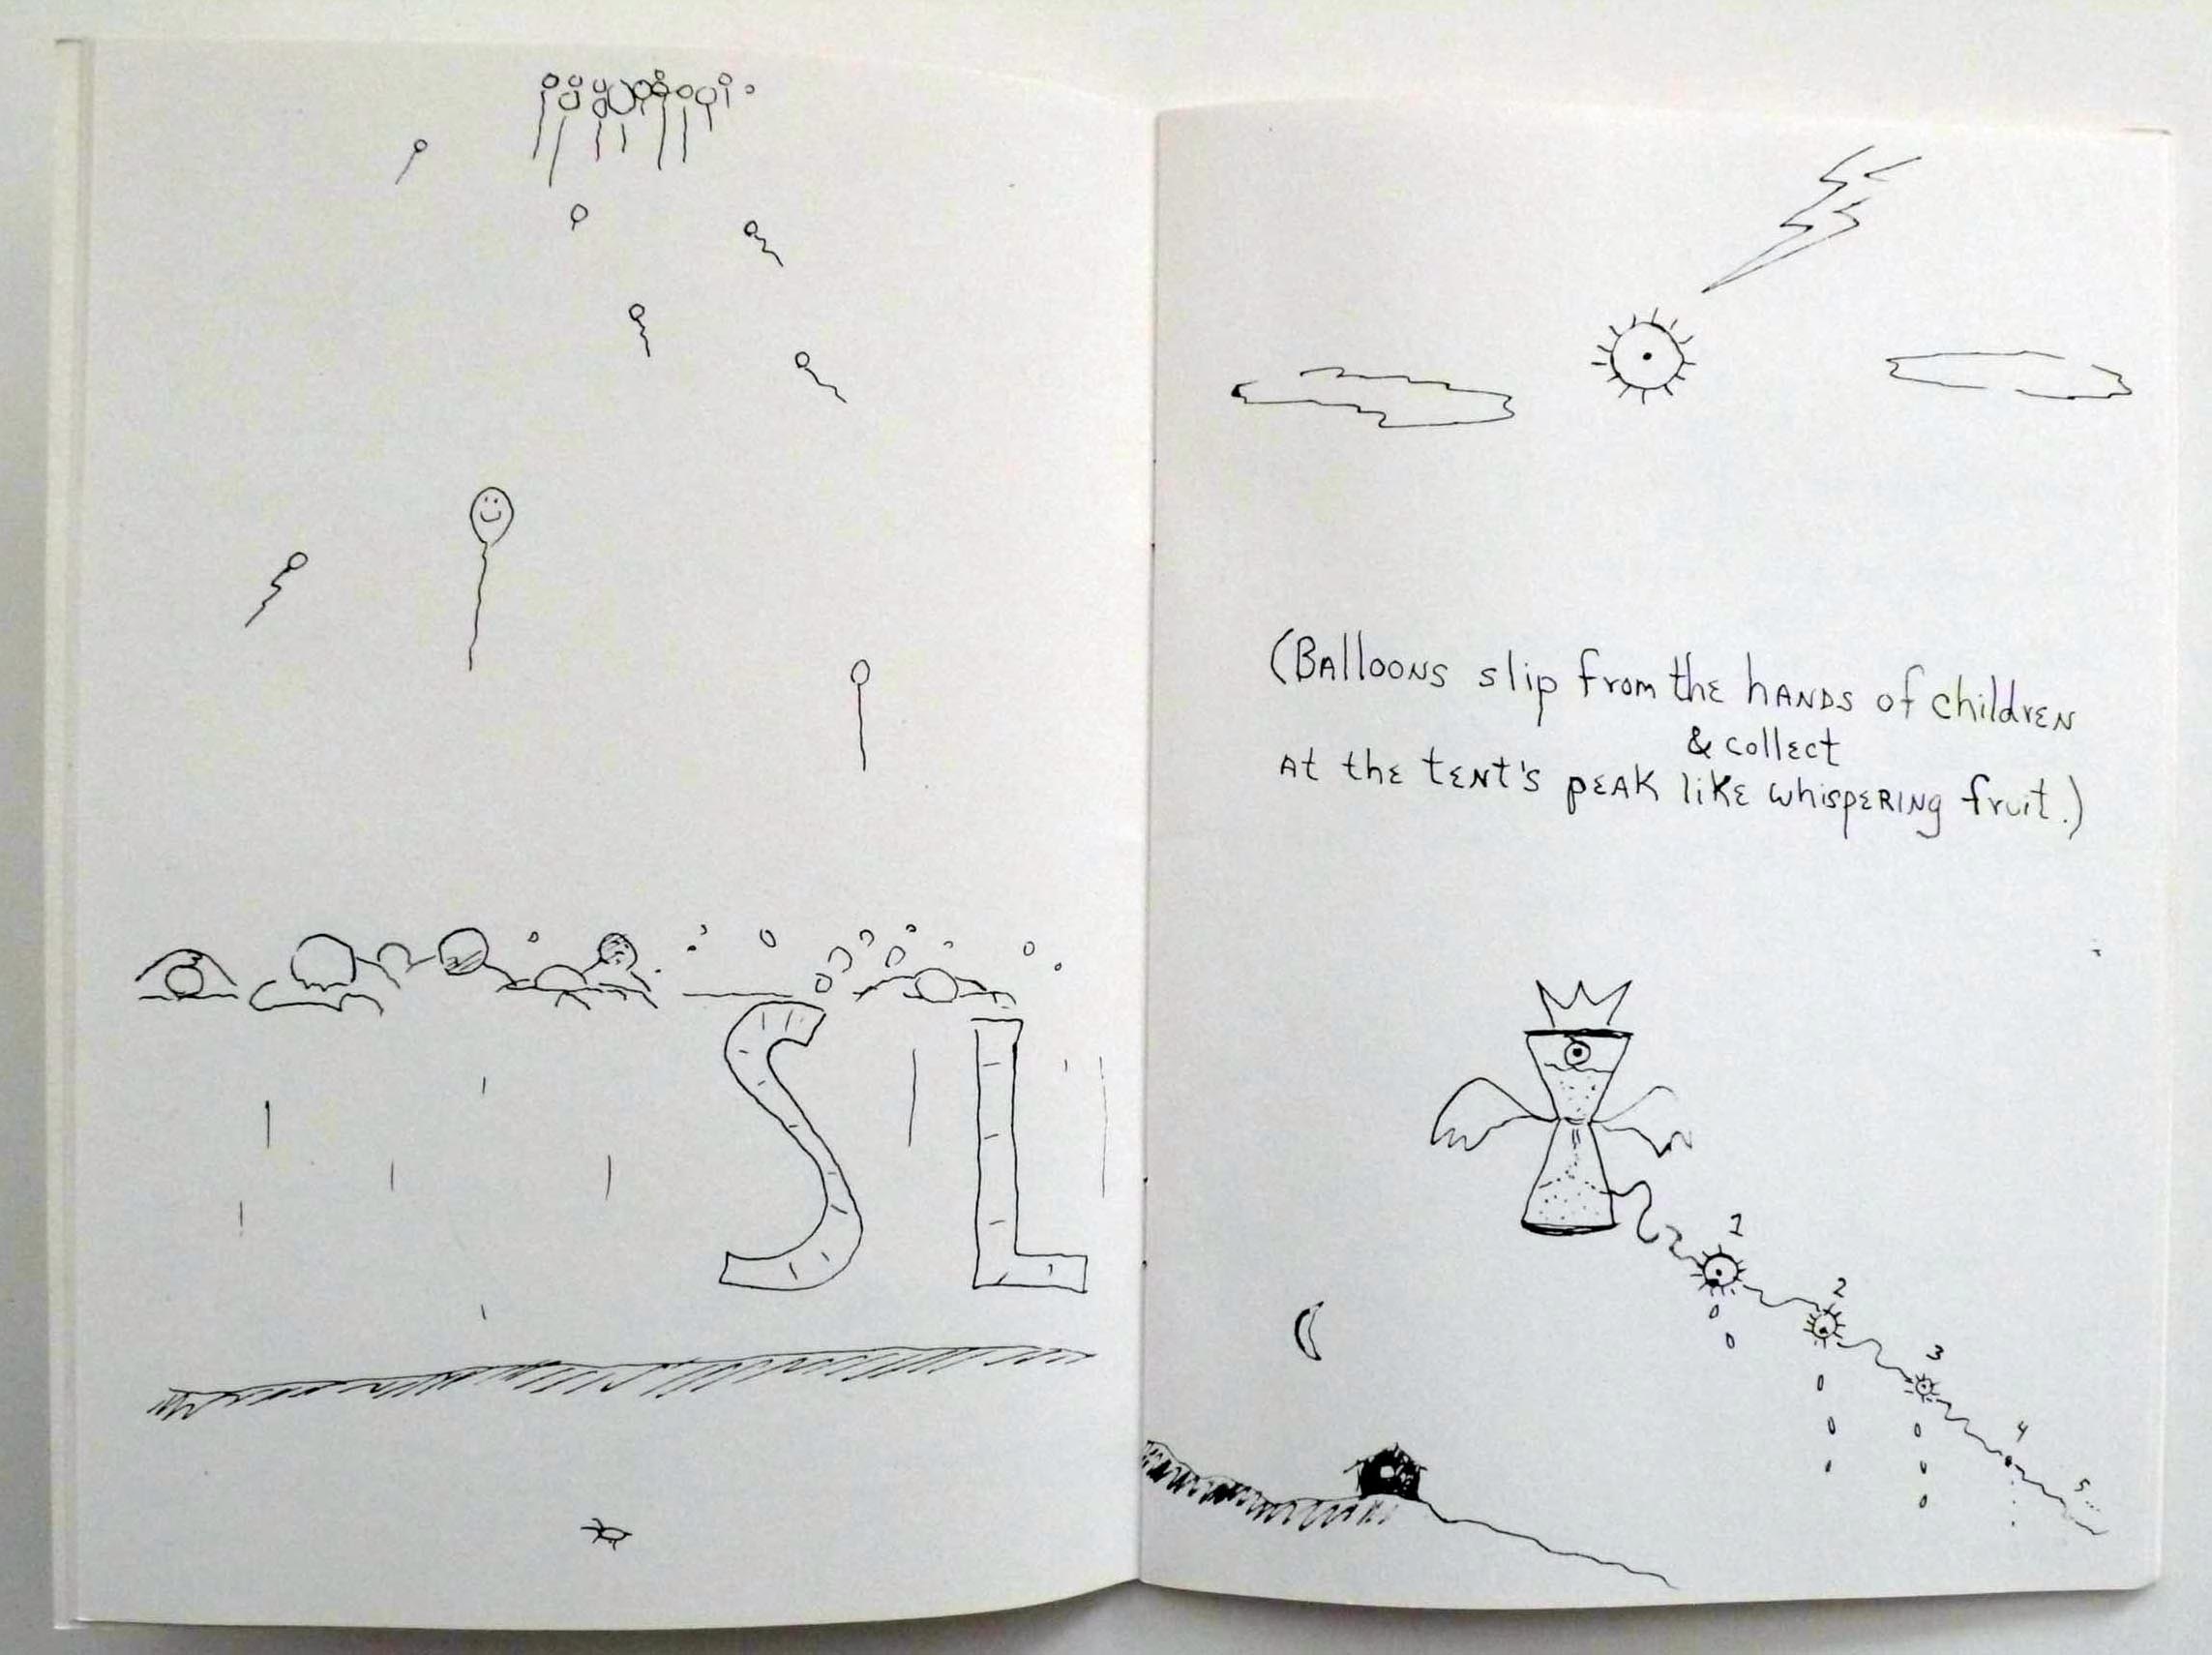 SL
(Balloons slip from the hands of children
& collect
at the tent's peak like whispering fruit.)
1
2
3
4
5